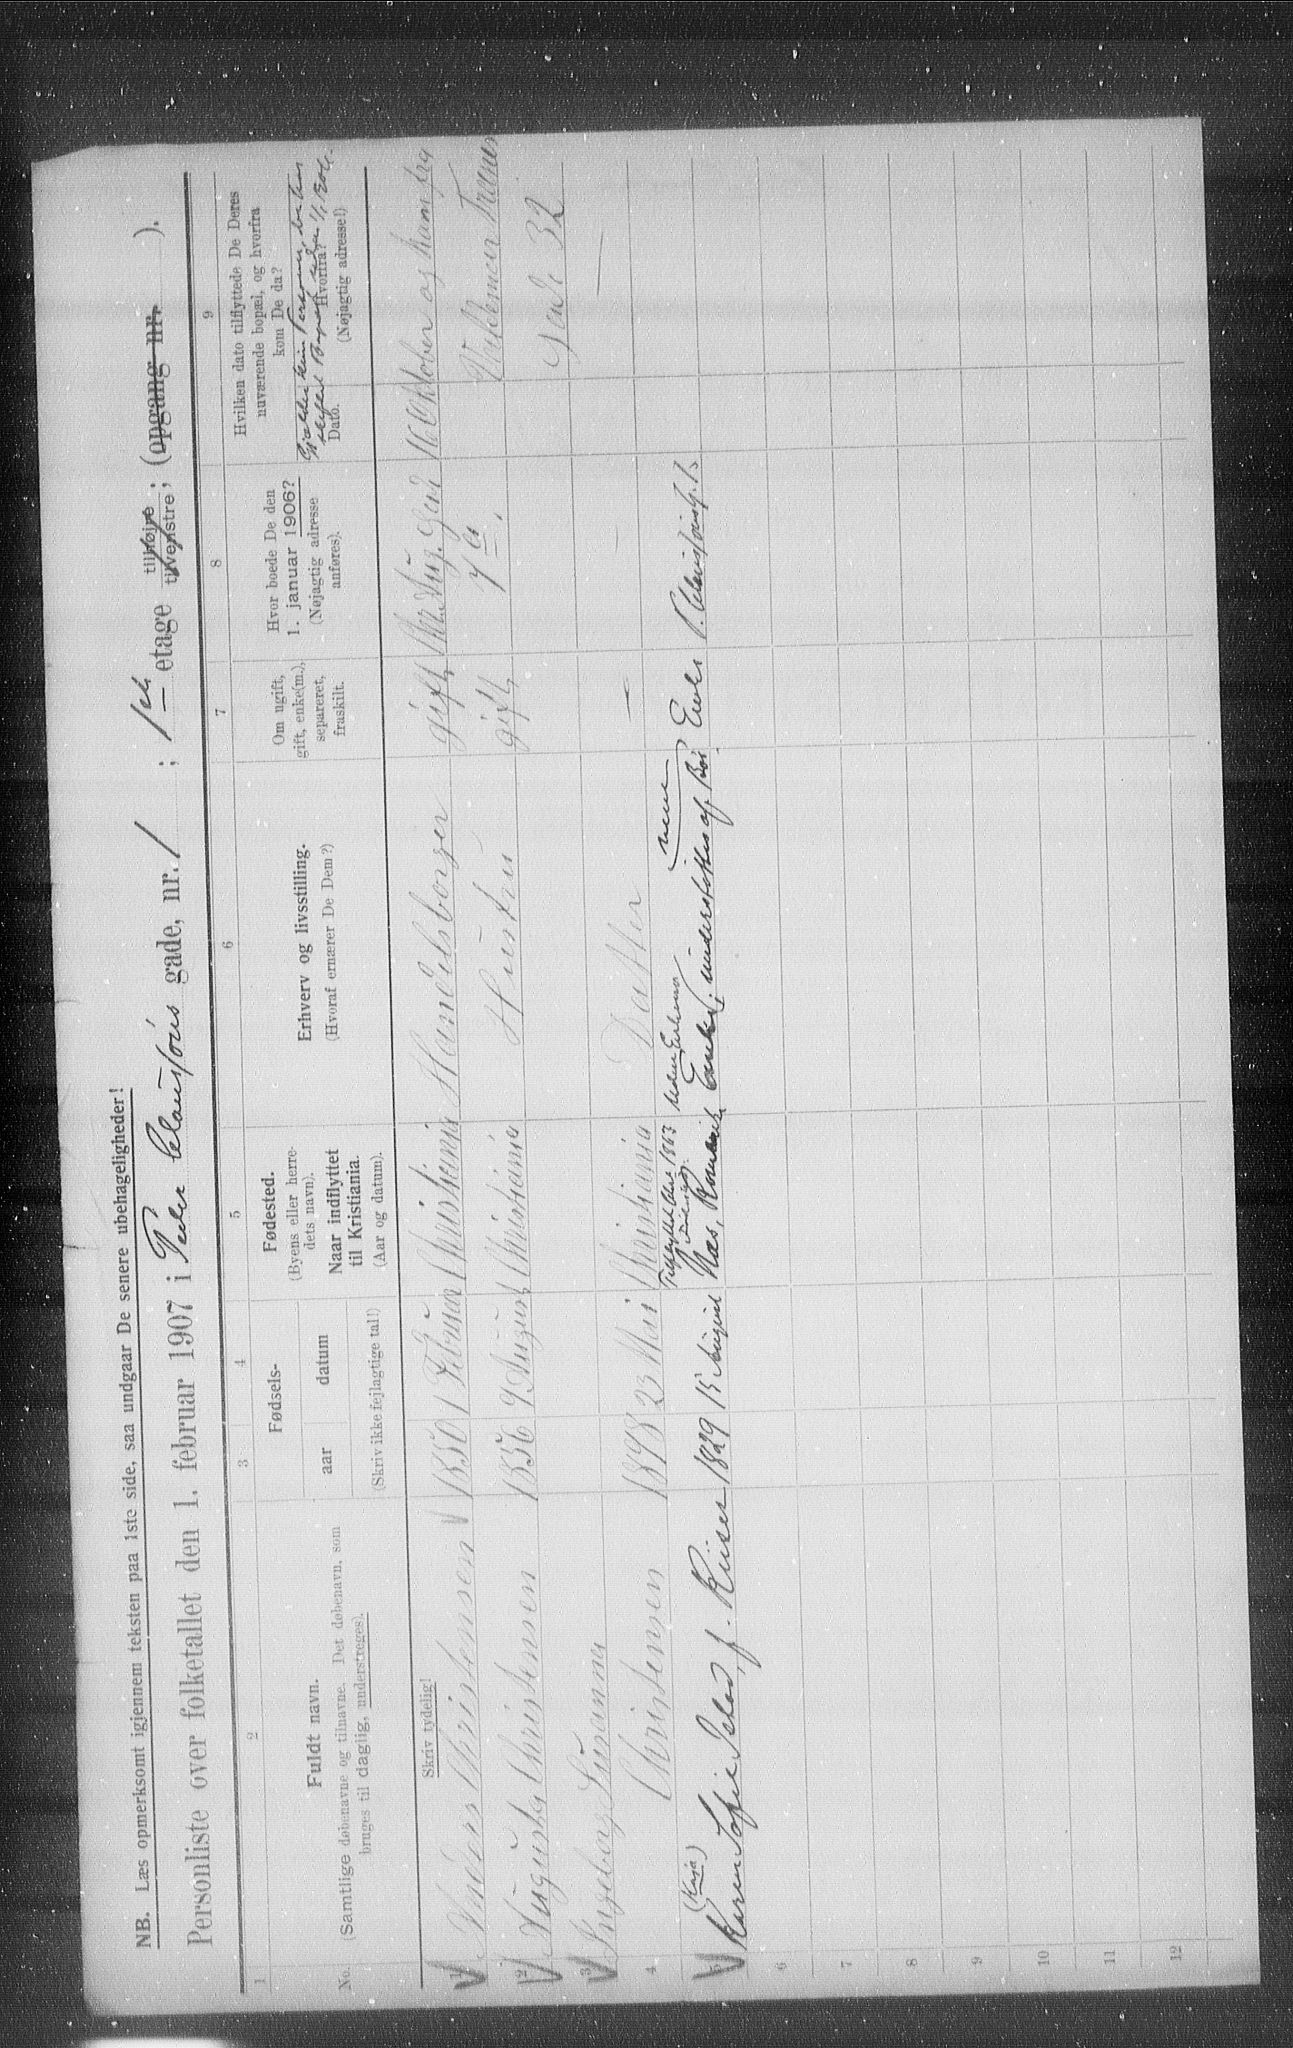 NB. Læs opmerksomt igjennem teksten paa 1ste side, saa undgaar De senere ubehageligheder!
Personliste over folketallet den 1. februar 1907 i Peder Claussøns gade, nr. 1 ; 1ste etage tilhøire tilvenstre ; (opgang nr. ).
1 2 3 4 5 6 7 8 9
No.
Fuldt navn.
(Samtlige døbenavne og tilnavne. Det døbenavn, som
bruges til daglig, understreges).
Fødsels-
aar datum
(Skriv ikke fejlagtige tal!)
Fødested.
(Byens eller herre-
dets navn).
Naar indflyttet
til Kristiania.
(Aar og datum).
Erhverv og livsstilling.
(Hvoraf ernærer De Dem?)
Om ugift,
gift, enke(m.),
separeret,
fraskilt.
Hvor boede De den
1. januar 1906?
(Nøjagtig adresse
anføres).
Hvilken dato tilflyttede De Deres
nuværende bopæl, og hvorfra
kom De da?
Gjælder kun Personer, der har
skiftet Bopæl siden 1/1 1906.
Dato. Hvorfra?
(Nøjagtig adresse!)
Skriv tydelig!
1 Anders Christensen 1850 1 Februar Christiania Handelsborger gift Chr. Aug. Gad 16 Oktober og kom fra
2 Augusta Christensen 1856 9 August Christiania Hustru gift
Gade 32
3 Ingeborg Susanna
4 Christensen 1893 23 Mai Christiania Datter —
(Kaja) Tilflyttet 1863
5 Karen Sofie f. Riiser 1829 15 August Næs, Romerike Enke, understøttes af Enke P. Claussønsg. 1
6
7
8
9
10
11
12